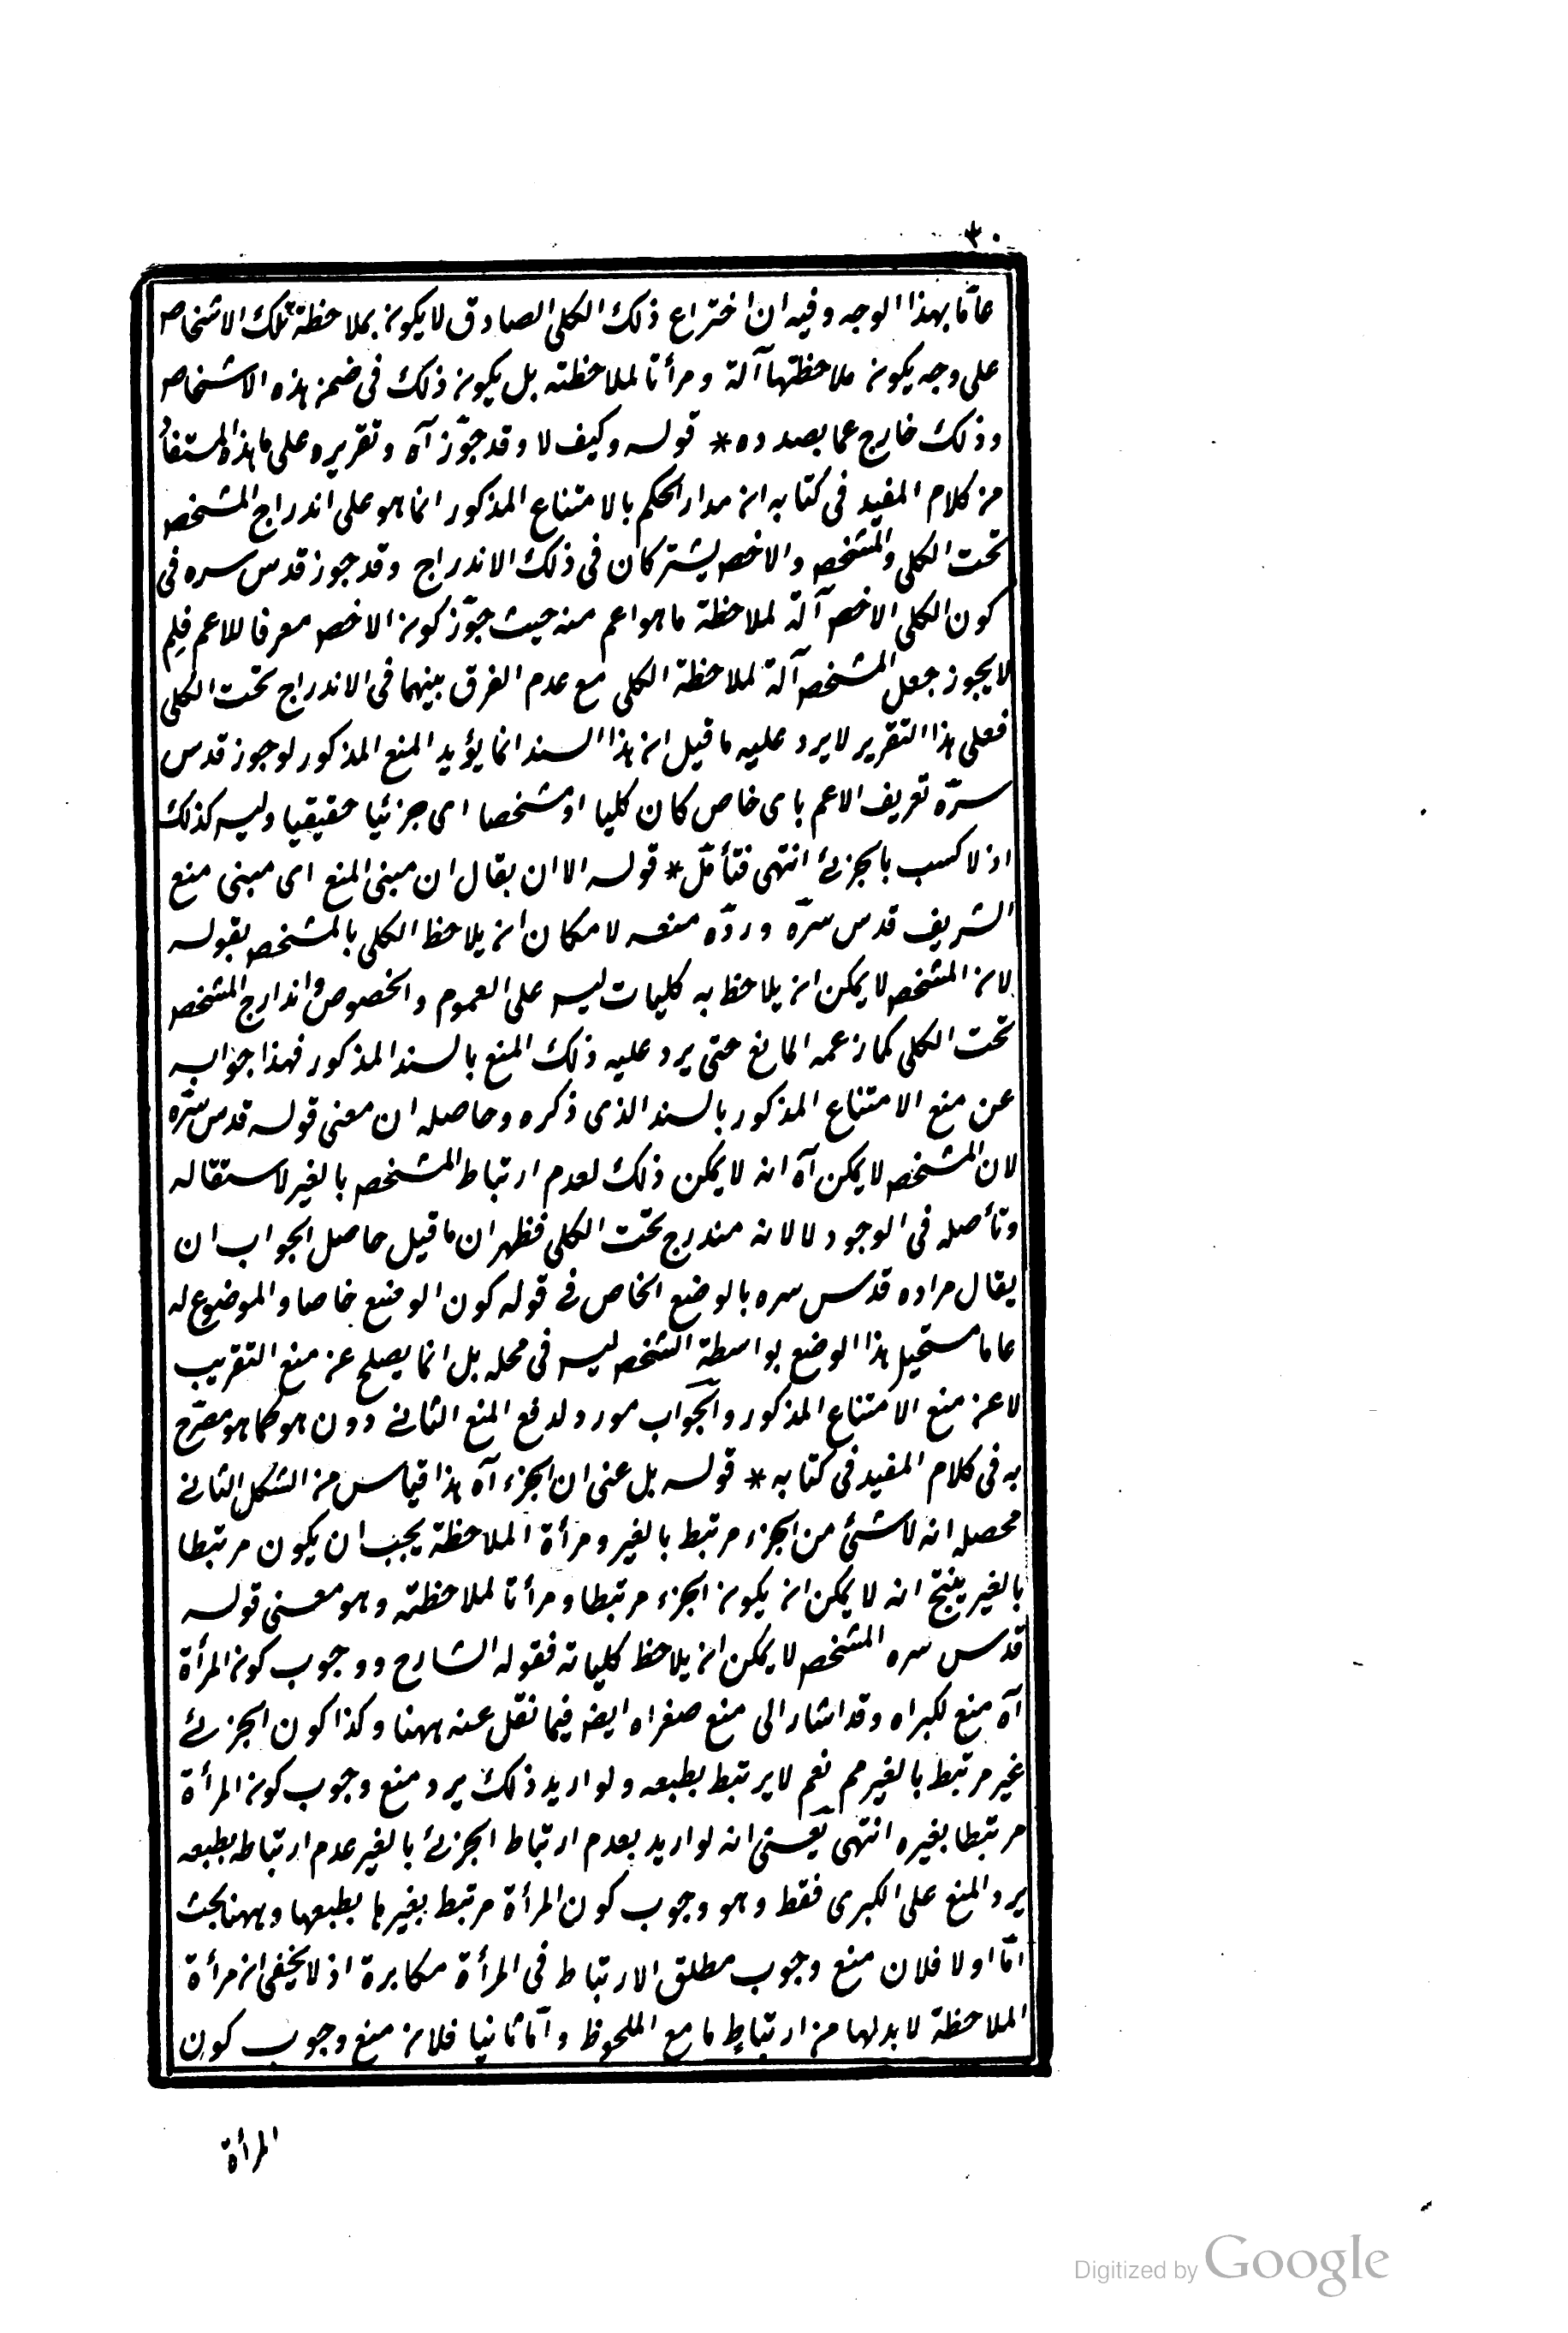 ٣٠
عامّا بهذا الوجه وفيه ان اختراع ذلك الكلى الصادق لا يكون بملاحظة تلك الاشخاص
على وجه يكون ملاحظتها آلة ومرأتا لملاحظته بل يكون ذلك فى ضمن هذه الاشخاص
وذلك خارج عما بصدده * قوله وكيف لا وقد جوّز آه وتقريره على ما هذا المستفاد
من كلام المفيد فى كتابه ان مدار الحكم بالامتناع المذكور انما هو على اندراج المشخص
تحت الكلى والمشخص والاخص يشتركان فى ذلك الاندراج وقد جوز قدس سره فى
كون الكلى الاخص آلة لملاحظة ما هو اعم منه حيث جوّز كون الاخص معرفا للاعم فلم
لا يجوز جعل المشخص آلة لملاحظة الكلى مع عدم الفرق بينهما فى الاندراج تحت الكلى
فعلى هذا التقرير لا يرد عليه ما قيل ان هذا السند انما يؤيد المنع المذكور لو جوز قدس
سرّه تعريف الاعم باى خاص كان كليا او مشخصا اى جزئيا حقيقيا وليس كذلك
اذ لا كسب بالجزئ انتهى فتأمّل * قوله الا ان يقال ان مبنى المنع اى مبنى منع
الشريف قدس سرّه وردّه منعه لامكان ان يلاحظ الكلى بالمشخص بقوله
لان المشخص لا يمكن ان يلاحظ به كليات ليس على العموم والخصوص واندارج المشخص
تحت الكلى كما زعمه المانع حتى يرد عليه ذلك المنع بالسند المذكور فهذا جواب
عن منع الامتناع المذكور بالسند الذى ذكره وحاصله ان معنى قوله قدس سرّه
لان المشخص لا يمكن آه انه لا يمكن ذلك لعدم ارتباط المشخص بالغير لاستقلاله
وتأصله فى الوجود لا لانه مندرج تحت الكلى فظهر ان ما قيل حاصل الجواب ان
يقال مراده قدس سره بالوضع الخاص فى قوله كون الوضع خاصا والموضوع له
عاما مستحيل هذا الوضع بواسطة الشخص ليس فى محله بل انما يصلح عن منع التقريب
لا عن منع الامتناع المذكور والجواب مورد لدفع المنع الثانى دون هو كما هو مصرّح
به فى كلام المفيد فى كتابه * قوله بل عنى ان الجزء آه هذا قياس من الشكل الثانى
محصله انه لا شئ من الجزء مرتبط بالغير ومرأة الملاحظة يجب ان يكون مرتبطا
بالغير ينتج انه لا يمكن ان يكون الجزء مرتبطا ومرأتا لملاحظته وهو معنى قوله
قدس سره المشخص لا يمكن ان يلاحظ كلياته فقوله الشارح ووجوب كون المرأة
آه منع لكبراه وقد اشار الى منع صغراه ايضا فيما نقل عنه ههنا وكذا كون الجزئ
غير مرتبط بالغير مم نعم لا يرتبط بطبعه ولو اريد ذلك يرد منع وجوب كون المرأة
مرتبطا بغيره انتهى يعنى انه لو اريد بعدم ارتباط الجزئ بالغير عدم ارتباطه بطبعه
يرد المنع على الكبرى فقط وهو وجوب كون المرأة مرتبط بغيرها بطبعها وههنا بحث
امّا اولا فلان منع وجوب مطلق الارتباط فى المرأة مكابرة اذ لا يخفى ان مرأة
الملاحظة لا بد لها من ارتباطٍ ما مع الملحوظ وامّا ثانيا فلان منع وجوب كون
المرأة
Digitized by Google